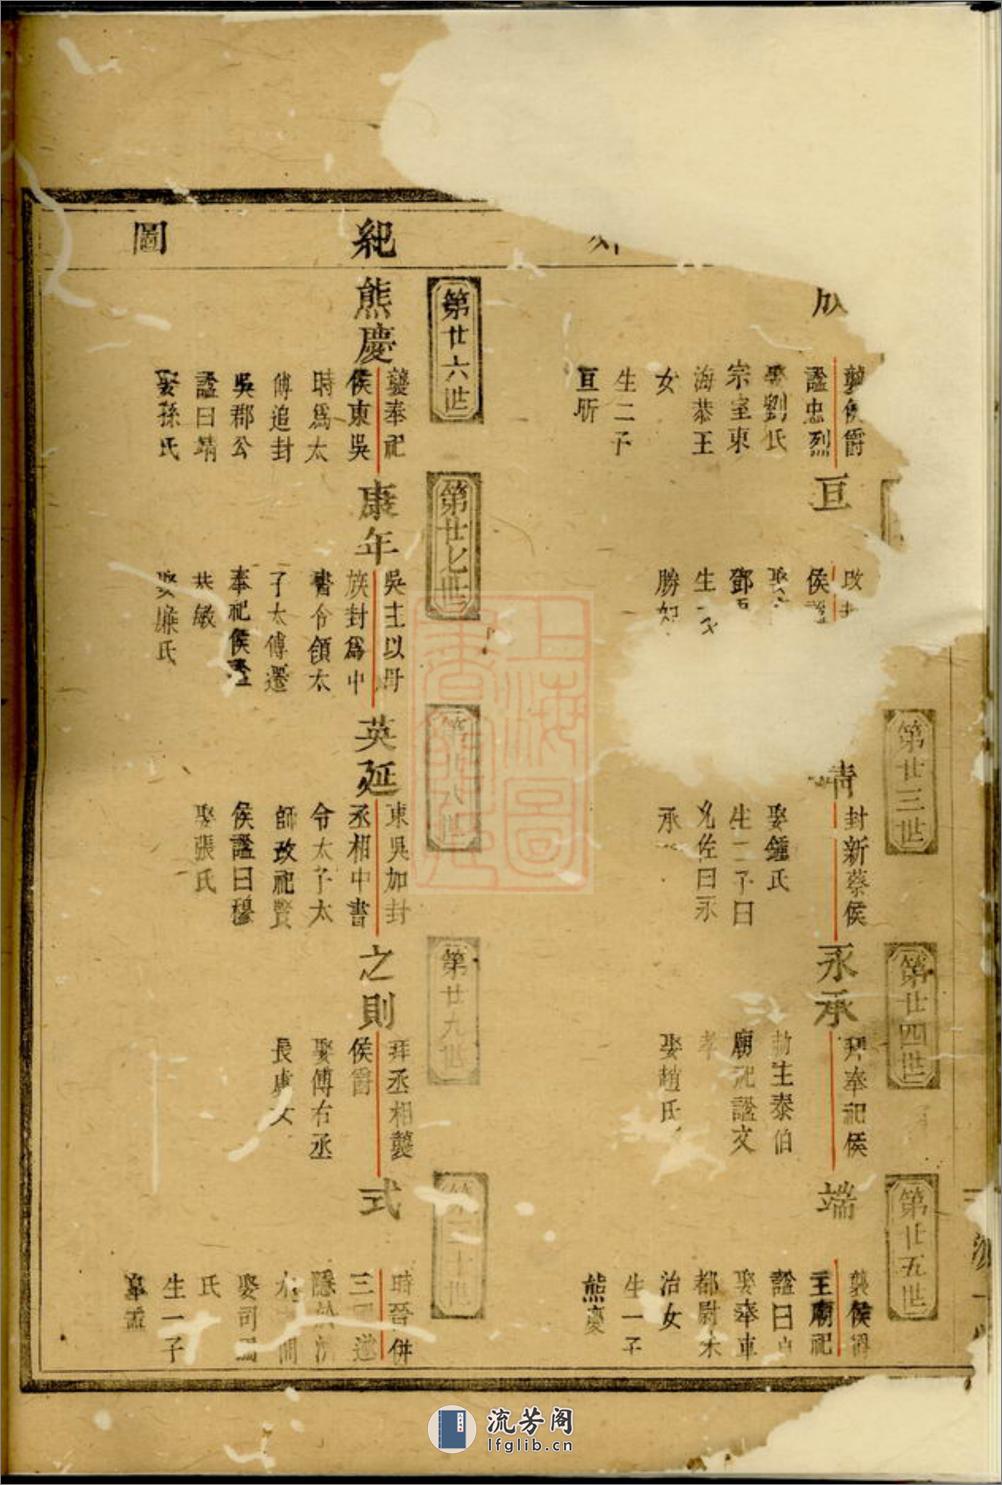 紀圖
成
襲侯爵
謚忠烈
娶劉氏
宗室東
海恭王
女
生二子
亘昕
亘
改封
侯謚
娶
鄧
生
勝
第廿三世
靖
封新蔡侯
娶鍾氏
生二子曰
允佐曰永
承
第廿四世
永承
拜奉祀侯
勅主泰伯
廟祀謚文
孝
娶趙氏
第廿五世
端
襲侯爵
主廟祀
謚曰
娶奉車
都尉朱
治女
生一子
熊慶
第廿六世
熊慶
襲奉祀
侯東吳
時爲太
傅追封
吳郡公
謚曰靖
娶孫氏
第廿七世
康年
吳主以母
族封爲中
書令領太
子太傅遷
奉祀侯謚
恭敏
娶廉氏
第廿八世
英延
東吳加封
丞相中書
令太子太
師改祀賢
侯謚曰穆
娶張氏
第廿九世
之則
拜丞相襲
侯爵
娶傅右丞
長虞女
第三十世
式
時晉併
三
隱於
間
娶司馬
氏
生一子
上海圖書館藏
流芳阁
lfglib.cn